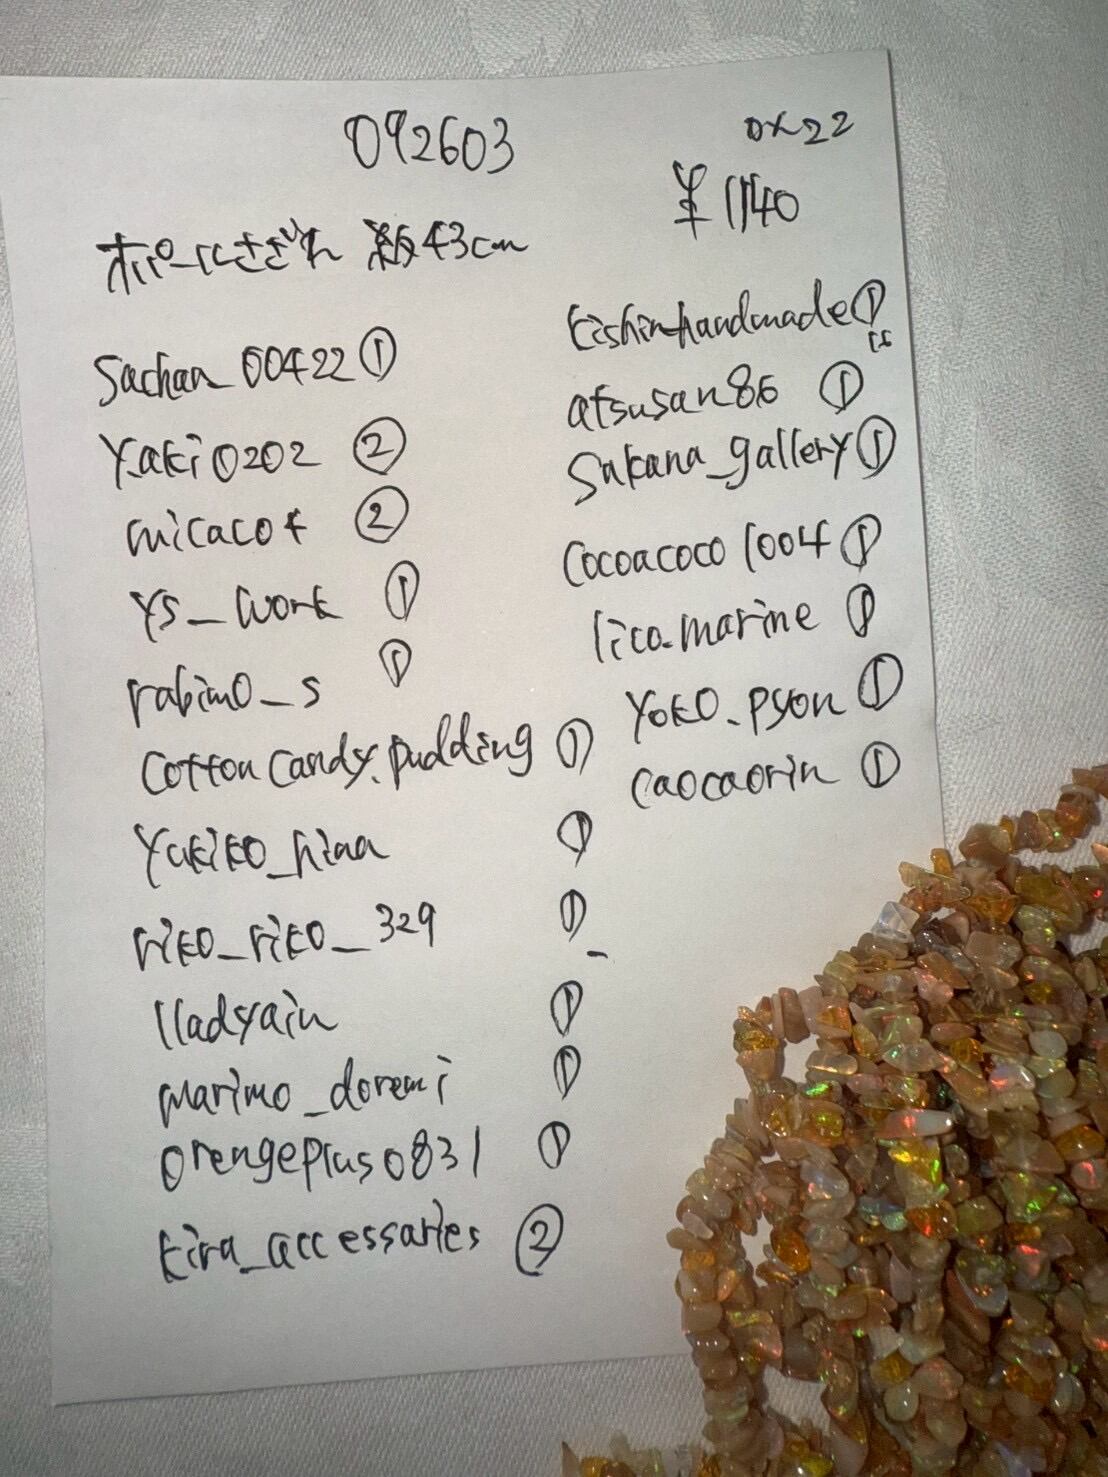 092603
0x22
¥1140
オパールさざれ 約43cm
Sachan_00422①
Yaki0202 ②
micaco+ ②
YS_work ①
rabimo_s ①
Cottoncandy.pudding ①
Yukiko_hina ①
riko_riko_329 ①
lladyain ①
marimo_doremi ①
orengeplus0831 ①
kira_accessaries ②
kishinhandmade①
atsusan86 ①
Sakana_gallery①
Cocoacoco1004①
lico.marine ①
Yoko.pyon ①
caocaorin ①